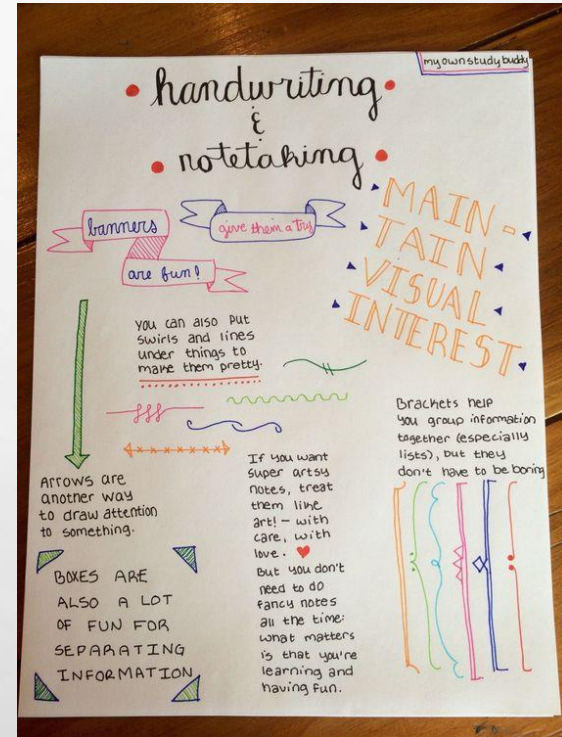 myownstudybuddy
handwriting
&
notetaking
banners
are fun!
give them a try
MAIN-
TAIN
VISUAL
INTEREST
you can also put
swirls and lines
under things to
make them pretty.
Arrows are
another way
to draw attention
to something.
BOXES ARE
ALSO A LOT
OF FUN FOR
SEPARATING
INFORMATION
If you want
super artsy
notes, treat
them like
art! - with
care, with
love. ♥
But you don't
need to do
fancy notes
all the time:
what matters
is that you're
learning and
having fun.
Brackets help
you group information
together (especially
lists), but they
don't have to be boring